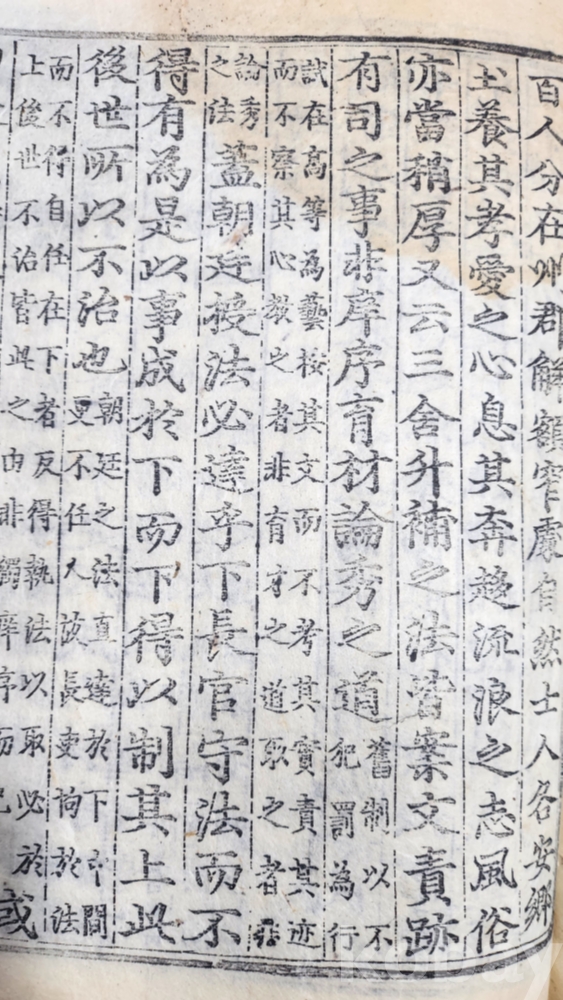 百人分在州郡解額窄處自然士人各安鄉
土養其孝愛之心息其奔趍流浪之志風俗
亦當稍厚又云三舍升補之法皆案文責跡
有司之事非庠序育材論秀之道舊制以不
犯罰為行
試在高等為藝按其文而不考其實責其迹
而不察其心教之者非育才之道取之者非
論秀
之法
蓋朝廷授法必達乎下長官守法而不
得有為是以事成於下而下得以制其上此
後世所以不治也朝廷之法直達於下中間
更不任人故長吏拘於法
而不行自任在下者反得執法以取必於
上後世不治皆此之由非獨庠序而已
或